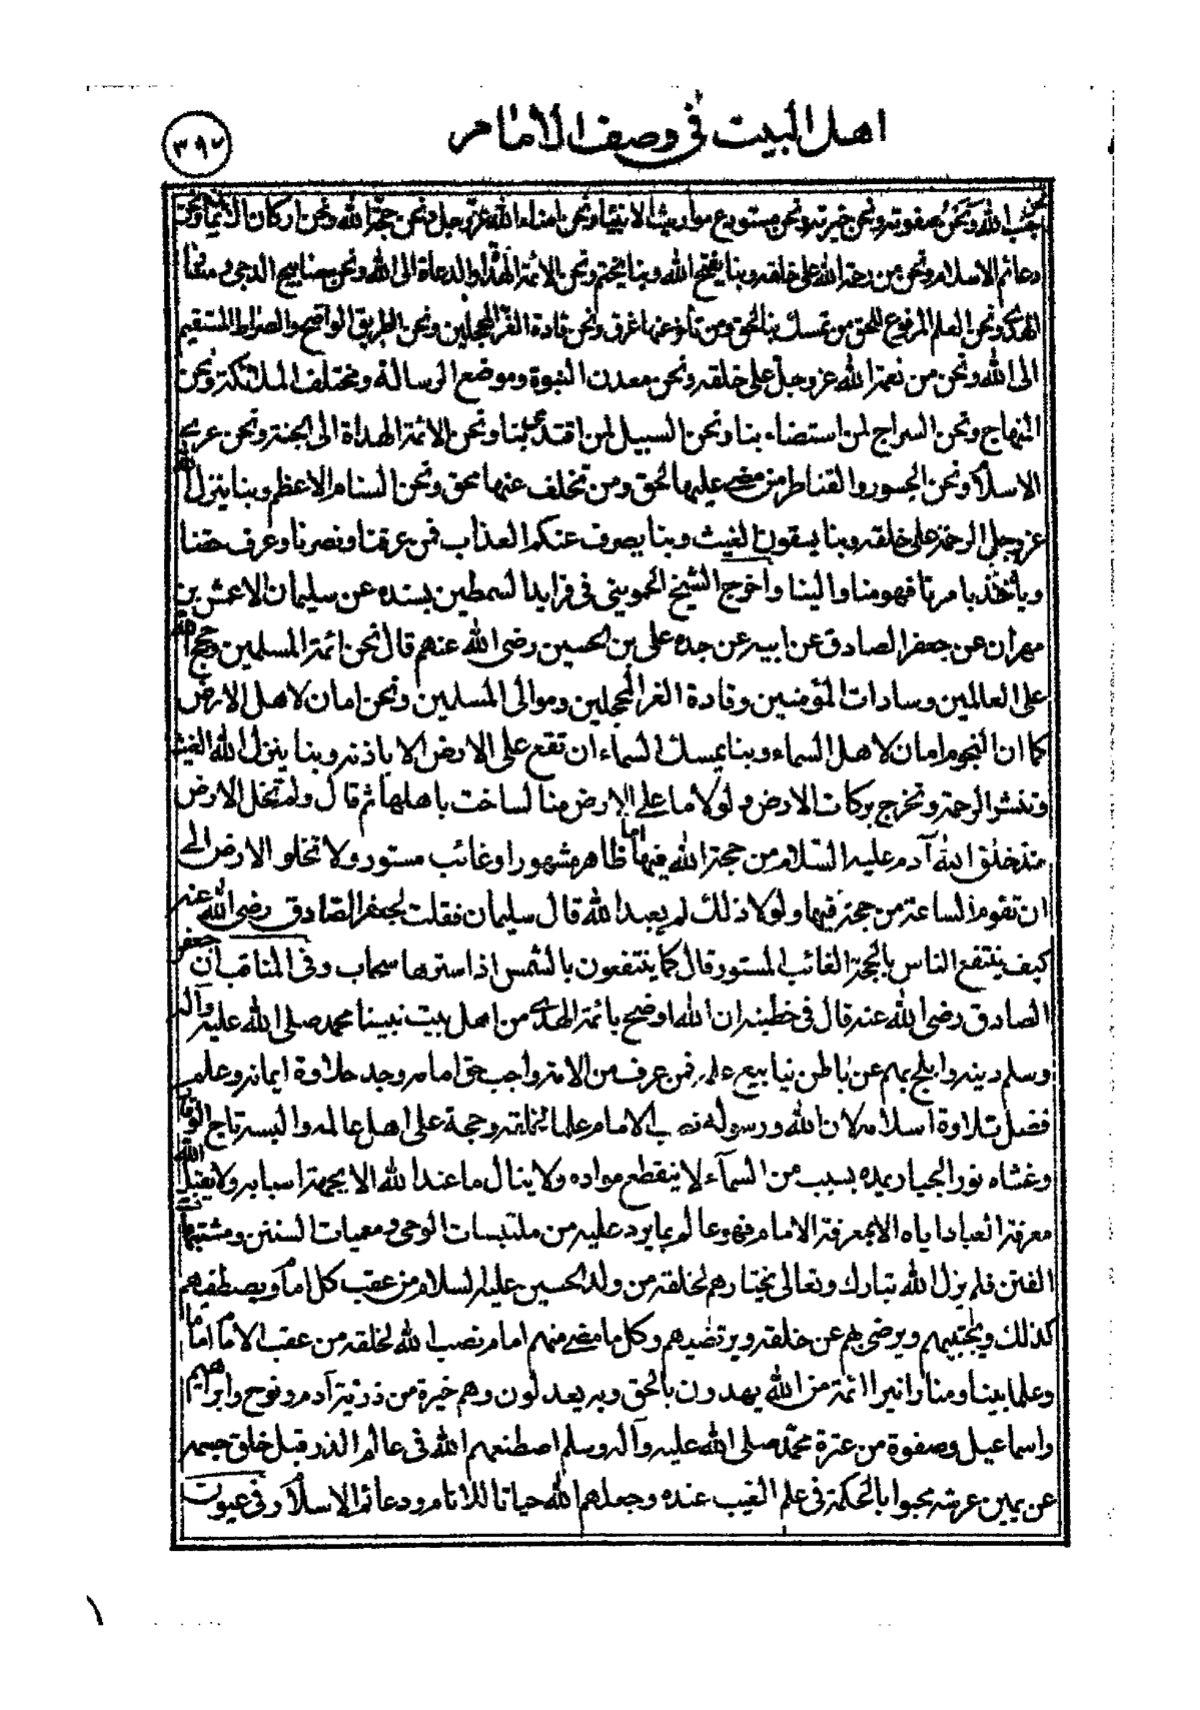 اهل البيت في وصف الامام
٣٩٧
جنب الله ونحن صفوته ونحن خيرته ونحن مستودع مواريث الانبياء ونحن امناء الله عز وجل ونحن حجة الله ونحن اركان الايمان ونحن
دعائم الاسلام ونحن من رحمة الله على خلقه وبنا يفتح الله وبنا يختم ونحن الائمة الهداة والدعاة الى الله ونحن مصابيح الدجى و منار
الهدى ونحن العلم المرفوع للحق من تمسك بنا لحق ومن تأخر عنا غرق ونحن قادة الغر المحجلين ونحن الطريق الواضح والصراط المستقيم
الى الله ونحن من نعمة الله عز وجل على خلقه ونحن معدن النبوة وموضع الرسالة ومختلف الملائكة ونحن
المنهاج ونحن السراج لمن استضاء بنا ونحن السبيل لمن اقتدى بنا ونحن الائمة الهداة الى الجنة ونحن عرى
الاسلام ونحن الجسور والقناطر من مضى عليها لحق ومن تخلف عنها محق ونحن السنام الاعظم وبنا ينزل الله
عز وجل الرحمة على خلقه وبنا يسقون الغيث وبنا يصرف عنكم العذاب فمن عرفنا ونصرنا وعرف حقنا
وياخذ بامرنا فهو منا والينا واخرج الشيخ الحمويني في فرايد السمطين بسنده عن سليمان الاعمش بن
مهران عن جعفر الصادق عن ابيه عن جده على بن الحسين رضى الله عنهم قال نحن ائمة المسلمين وحجج الله
على العالمين وسادات المؤمنين وقادة الغر المحجلين وموالى المسلمين ونحن امان لاهل الارض
كما ان النجوم امان لاهل السماء وبنا يمسك السماء ان تقع على الارض الا باذنه وبنا ينزل الله الغيث
وتنشر الرحمة وتخرج بركات الارض ولولا ما على الارض منا لساخت باهلها ثم قال ولم تخل الارض
منذ خلق الله آدم عليه السلام من حجة الله فيها اما ظاهر مشهور او غائب مستور ولا تخلو الارض الى
ان تقوم الساعة من حجة فيها ولولا ذلك لم يعبد الله قال سليمان فقلت لجعفر الصادق رضى الله عنه
كيف ينتفع الناس بالحجة الغائب المستور قال كما ينتفعون بالشمس اذا سترها سحاب وفي المناقب ان جعفر
الصادق رضى الله عنه قال في خطبته ان الله اوضح بائمة الهدى من اهل بيت نبينا محمد صلى الله عليه وآله
وسلم دينه وابلج بهم عن باطن ينابيع علمه فمن عرف من الامة واجب حق امامه وجد حلاوة ايمانه وعلم
فضل تلاوة اسلامه لان الله ورسوله نصب الامام علما لخلقه وحجة على اهل عالمه والبسه تاج الوقار
وغشاه نور الجبار يمده بسبب من السماء لا ينقطع مواده ولا ينال ما عند الله الا بجهة اسبابه ولا يقبل الله
معرفة العباد اياه الا بمعرفة الامام فهو عالم بما يرد عليه من ملتبسات الوحى ومعميات السنن ومشتبهات
الفتن فلم يزل الله تبارك وتعالى يختارهم لخلقه من ولد الحسين عليه السلام من عقب كل امام ويصطفيهم
كذلك ويجتبيهم ويرضى بهم عن خلقه ويرتضيهم وكل ما مضى منهم امام نصب الله لخلقه من عقب الامام اماما
وعلما بينا ومنارا نيرا ائمة من الله يهدون بالحق وبه يعدلون وهم خيرة من ذرية آدم ونوح وابراهيم
واسماعيل وصفوة من عترة محمد صلى الله عليه وآله وسلم اصطنعهم الله في عالم الذر قبل خلق جسمه
عن يمين عرشه محبوا بالحكمة في علم الغيب عنده وجعلهم الله حياتا للانام ودعائم الاسلام وفي عيون